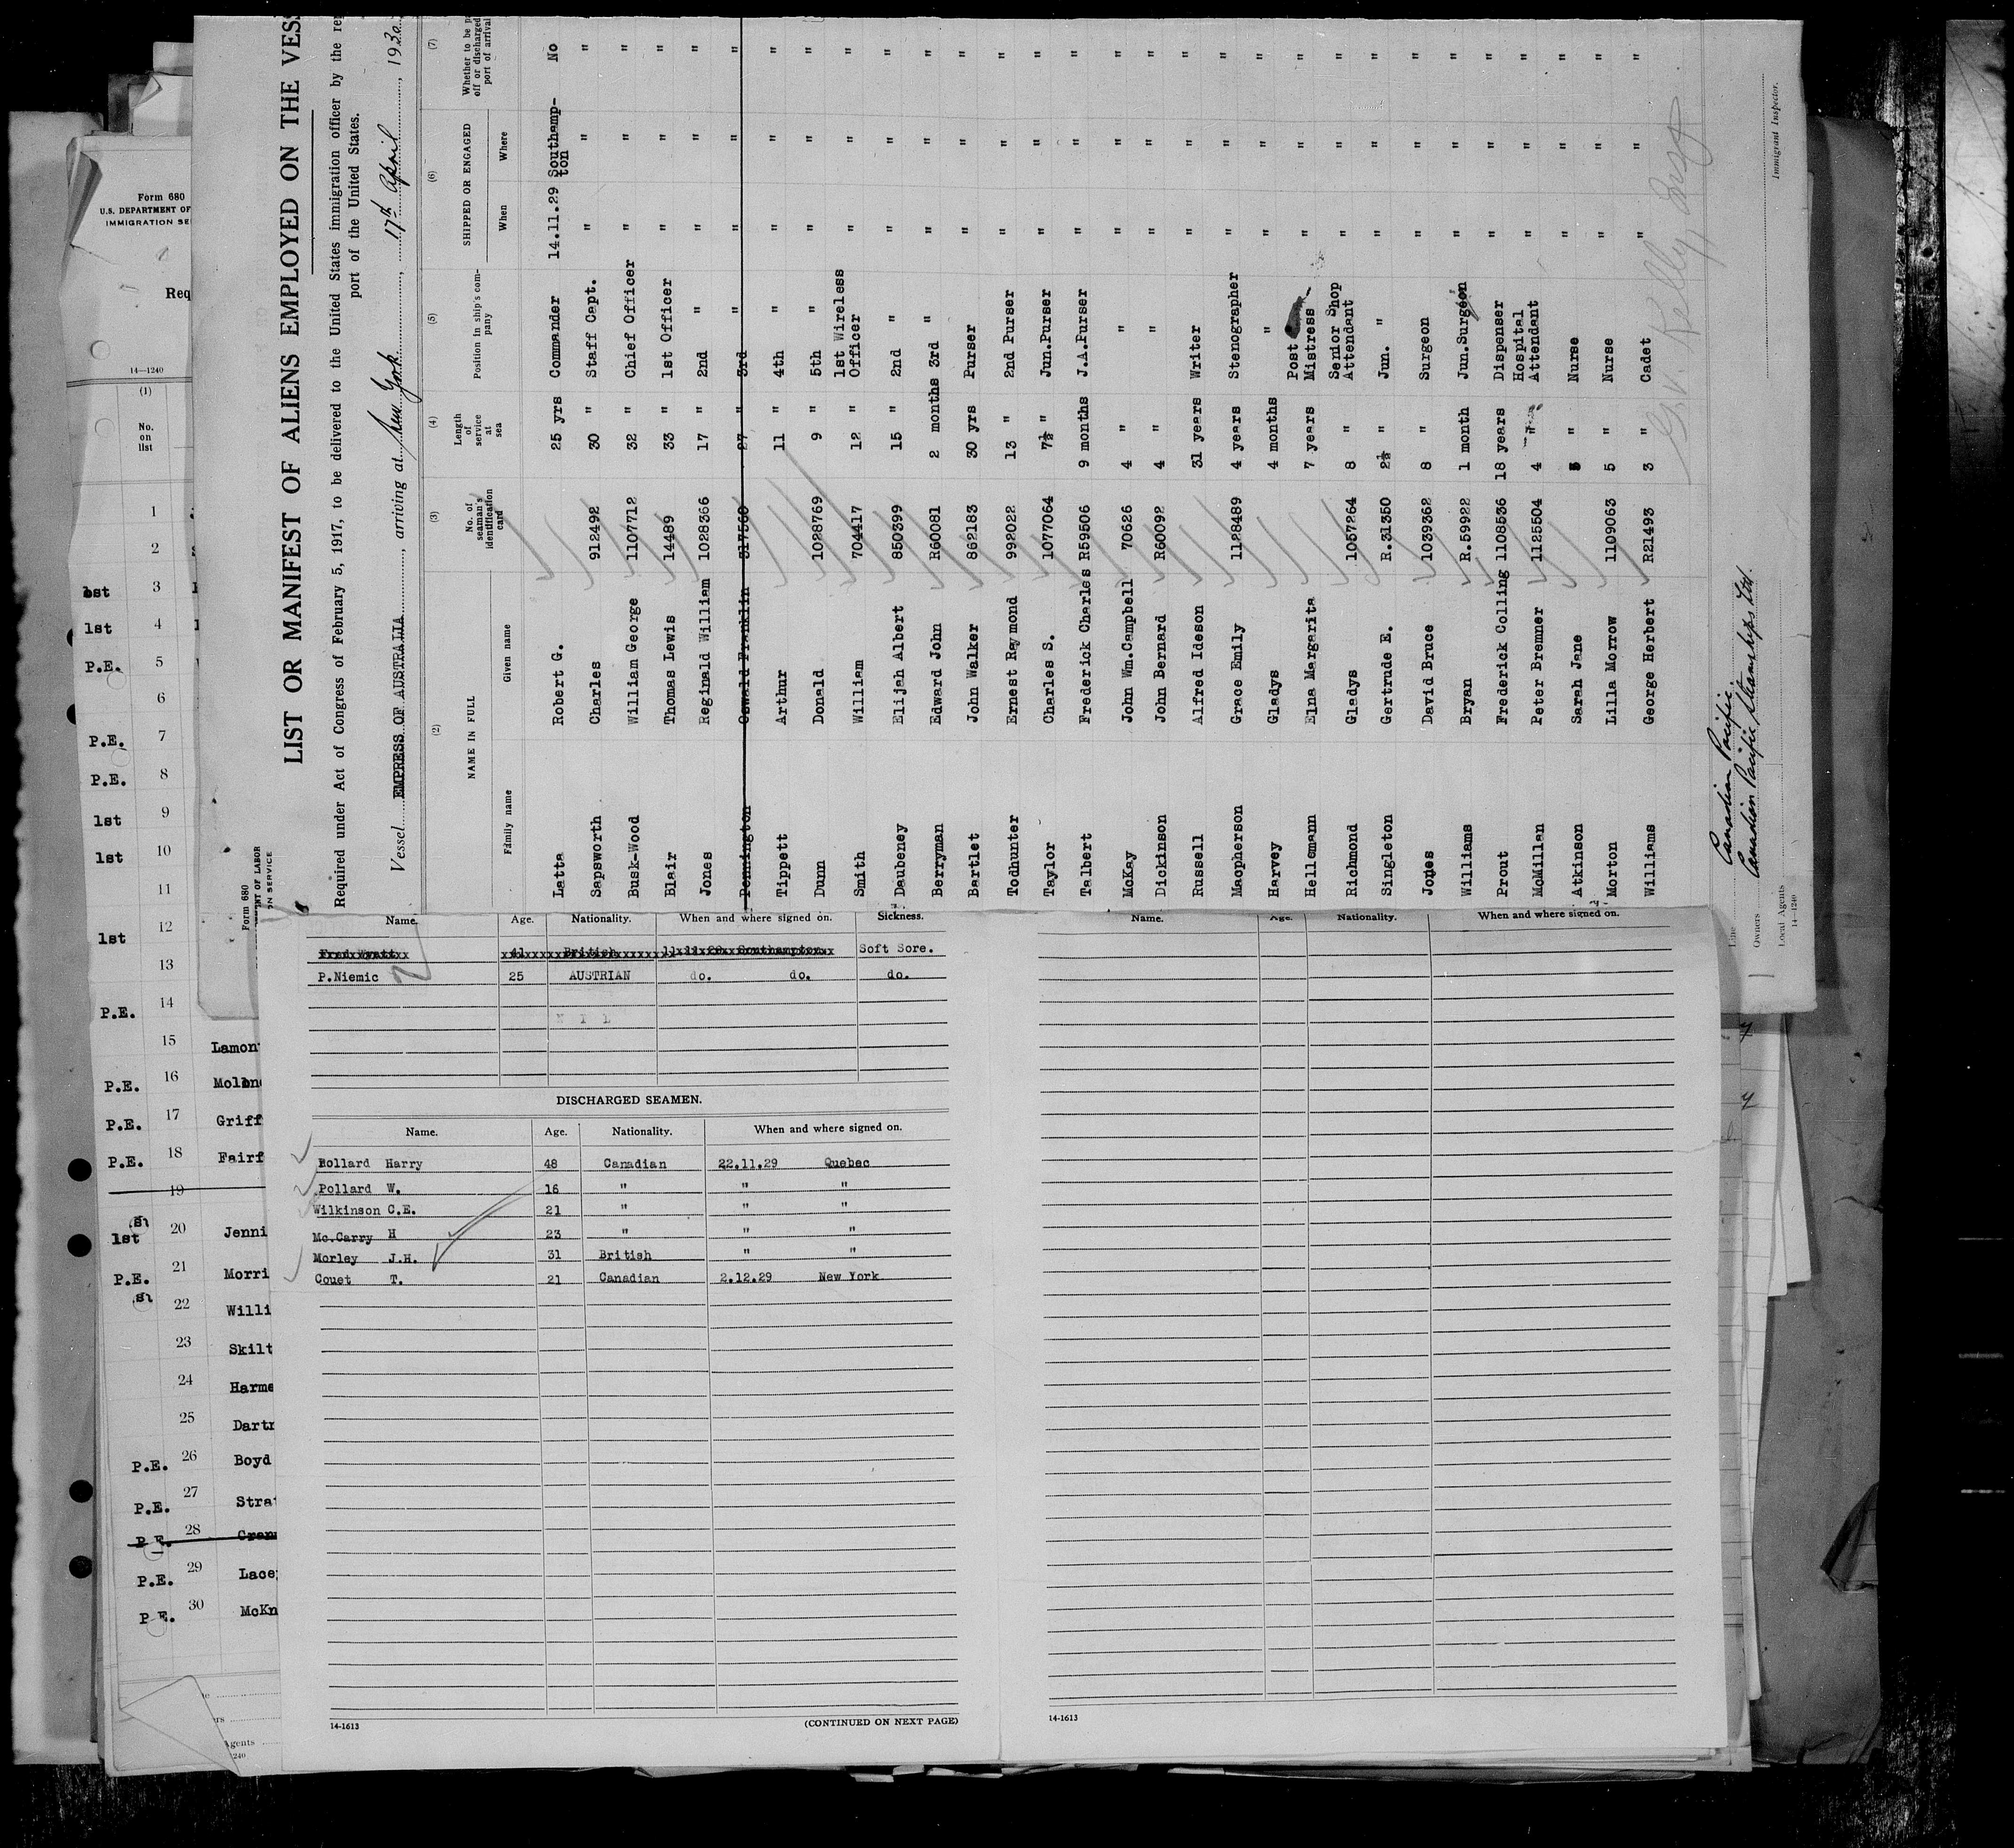 LIST OR MANIFEST OF ALIENS EMPLOYED ON THE VESS
Required under Act of Congress of February 5, 1917, to be delivered to the United States immigration officer by the re
port of the United States.
Vessel EMPRESS OF AUSTRALIA, arriving at New York, 17th April, 1930
(2) (3) (4) (5) (6) (7)
NAME IN FULL No. of seaman's identification card Length of service at sea Position in ship's company SHIPPED OR ENGAGED Whether to be p off or discharged port of arrival
Family name Given name When Where
Latta Robert G. 25 yrs Commander 14.11.29 Southamp-ton No
Sapsworth Charles 912492 30 " Staff Capt. " " "
Busk-Wood William George 1107712 32 " Chief Officer " " "
Blair Thomas Lewis 14489 33 " 1st Officer " " "
Jones Reginald William 1028366 17 " 2nd " " " "
Pennington Oswald Franklin 317560 27 " 3rd " " " "
Tippett Arthur 11 " 4th " " " "
Dunn Donald 1028769 9 " 5th " " " "
Smith William 704417 12 " 1st Wireless Officer " " "
Daubeney Elijah Albert 850399 15 " 2nd " " " "
Berryman Edward John R60081 2 months 3rd " " " "
Bartlet John Walker 862183 30 yrs Purser " " "
Todhunter Ernest Raymond 992022 13 " 2nd Purser " " "
Taylor Charles S. 1077064 7½ " Jun.Purser " " "
Talbert Frederick Charles R59506 9 months J.A.Purser " " "
McKay John Wm.Campbell 70626 4 " " " " "
Dickinson John Bernard R60092 4 " " " " "
Russell Alfred Ideson 31 years Writer " " "
Macpherson Grace Emily 1128489 4 years Stenographer " " "
Harvey Gladys 4 months " " " "
Hellemann Elna Margarita 7 years Post Mistress " " "
Richmond Gladys 1057264 8 " Senior Shop Attendant " " "
Singleton Gertrude E. R.31350 2½ " Jun. " " " "
Jones David Bruce 1039362 8 " Surgeon " " "
Williams Bryan R.59922 1 month Jun.Surgeon " " "
Prout Frederick Colling 1108536 18 years Dispenser " " "
McMillan Peter Bremner 1125504 4 " Hospital Attendant " " "
Atkinson Sarah Jane 5 " Nurse " " "
Morton Lilla Morrow 1109063 5 " Nurse " " "
Williams George Herbert R21493 3 " Cadet " " "
Immigrant Inspector.
Line Canadian Pacific.
Owners Canadian Pacific Steamships Ltd.
Local Agents
14—1240
Form 680
U.S. DEPARTMENT OF
IMMIGRATION SE
Req
14—1240
(1)
No. on list
1
2
1st 3
1st 4
P.E. 5
6
P.E. 7
P.E. 8
1st 9
1st 10
11
1st 12
13
P.E. 14
15 Lamon
P.E. 16
P.E. 17 Griff
P.E. 18 Fairf
19
1st 20 Jenni
P.E. 21 Morri
22 Willi
23 Skilt
24 Harme
25 Dartr
P.E. 26 Boyd
P.E. 27 Strat
P.E. 28
P.E. 29 Lace
P.E. 30 McKn
Agents
Form 680
MENT OF LABOR
ON SERVICE
Name. Age. Nationality. When and where signed on. Sickness.
Fred Wyatt 41 British 11 11 29 Southampton Soft Sore.
P.Niemic 25 AUSTRIAN do. do. do.
N I L
DISCHARGED SEAMEN.
Name. Age. Nationality. When and where signed on.
Pollard Harry 48 Canadian 22.11.29 Quebec
Pollard W. 16 " " "
Wilkinson C.E. 21 " " "
Mc.Carry H 23 " " "
Morley J.H. 31 British " "
Couet T. 21 Canadian 2.12.29 New York
14-1613 (CONTINUED ON NEXT PAGE)
Name. Age. Nationality. When and where signed on.
14-1613